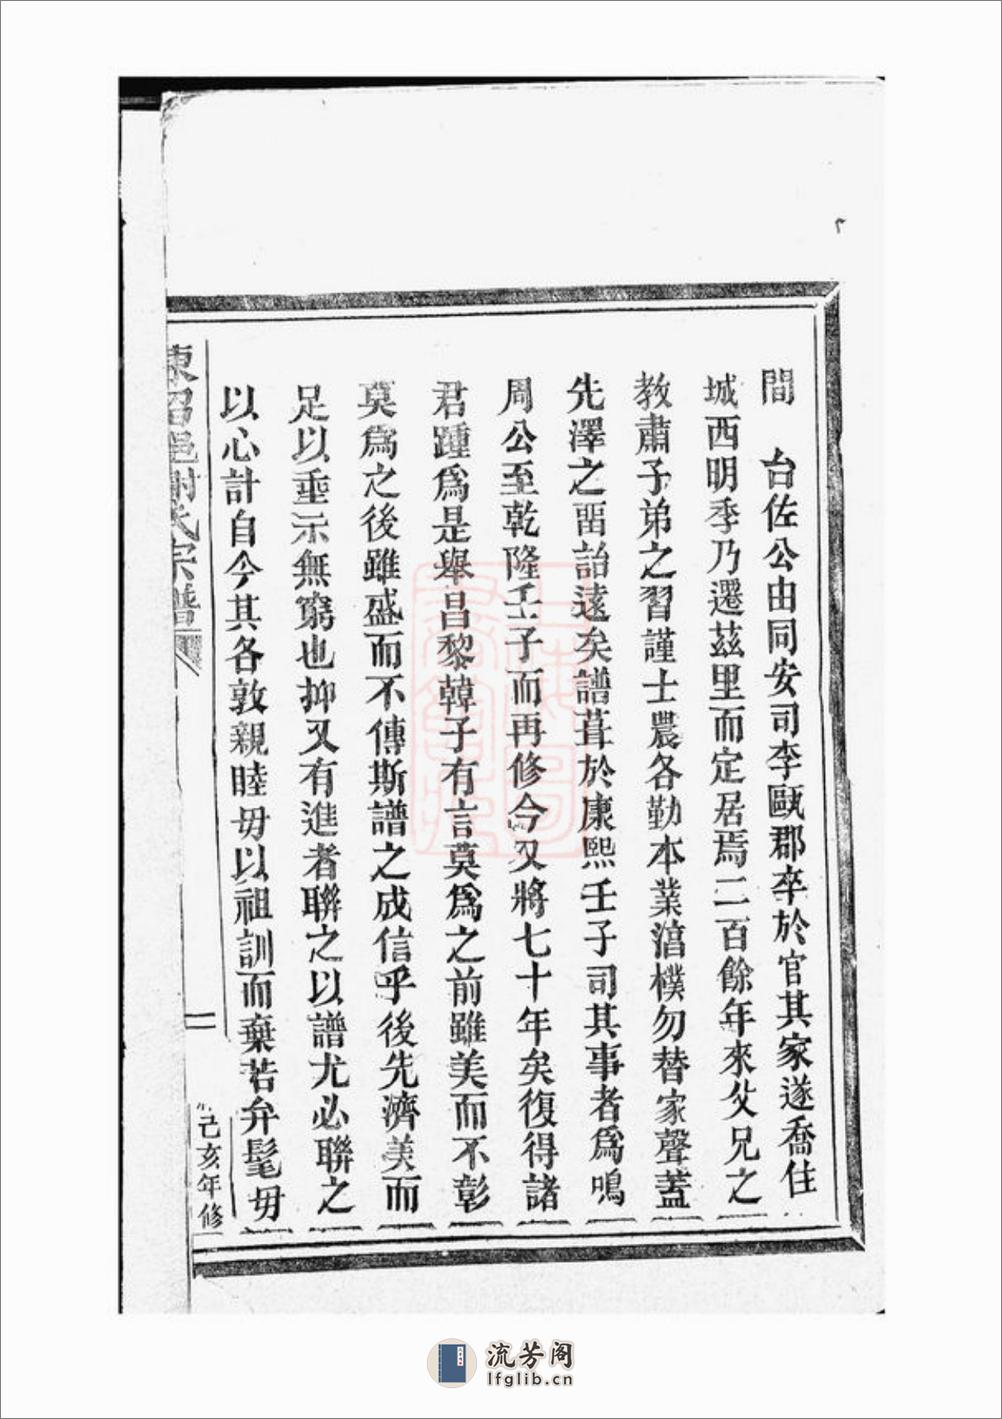 間　台佐公由同安司李甌郡卒於官其家遂喬住
城西明季乃遷茲里而定居焉二百餘年來父兄之
教肅子弟之習謹士農各勤本業湻樸勿替家聲蓋
先澤之畱詒遠矣譜葺於康熙壬子司其事者爲鳴
周公至乾隆壬子而再修今又將七十年矣復得諸
君踵爲是舉昌黎韓子有言莫爲之前雖美而不彰
莫爲之後雖盛而不傳斯譜之成信乎後先濟美而
足以垂示無窮也抑又有進者聯之以譜尤必聯之
以心計自今其各敦親睦毋以祖訓而棄若弁髦毋
謝氏宗譜
二
己亥年修
流芳阁
lfglib.cn